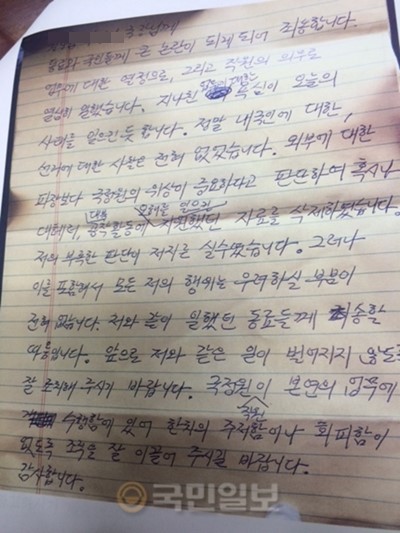 님께
동료와 국민들께 큰 논란이 되게 되어 죄송합니다.
업무에 대한 열정으로, 그리고 직원의 의무로
열심히 일했습니다. 지나친 업무에 대한 욕심이 오늘의
사태를 일으킨 듯 합니다. 정말 내국인에 대한,
선거에 대한 사찰은 전혀 없었습니다. 외부에 대한
파장보다 국정원의 위상이 중요하다고 판단하여 혹시나
대테러, 대북 공작활동에 오해를 일으킨 지원했던 자료를 삭제하였습니다.
저의 부족한 판단이 저지른 실수였습니다. 그러나
이를 포함해서 모든 저의 행위는 우려하실 부분이
전혀 없습니다. 저와 같이 일했던 동료들께 죄송할
따름입니다. 앞으로 저와 같은 일이 벌어지지 않도록
잘 조치해 주시기 바랍니다. 국정원 직원이 본연의 업무에
수행함에 있어 한치의 주저함이나 회피함이
없도록 조직을 잘 이끌어 주시길 바랍니다.
감사합니다.
국민일보